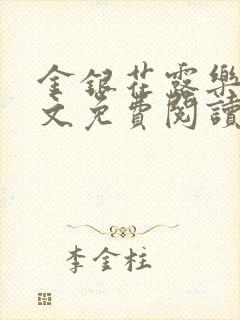 金银花露乐
文免費閱讀
李金柱